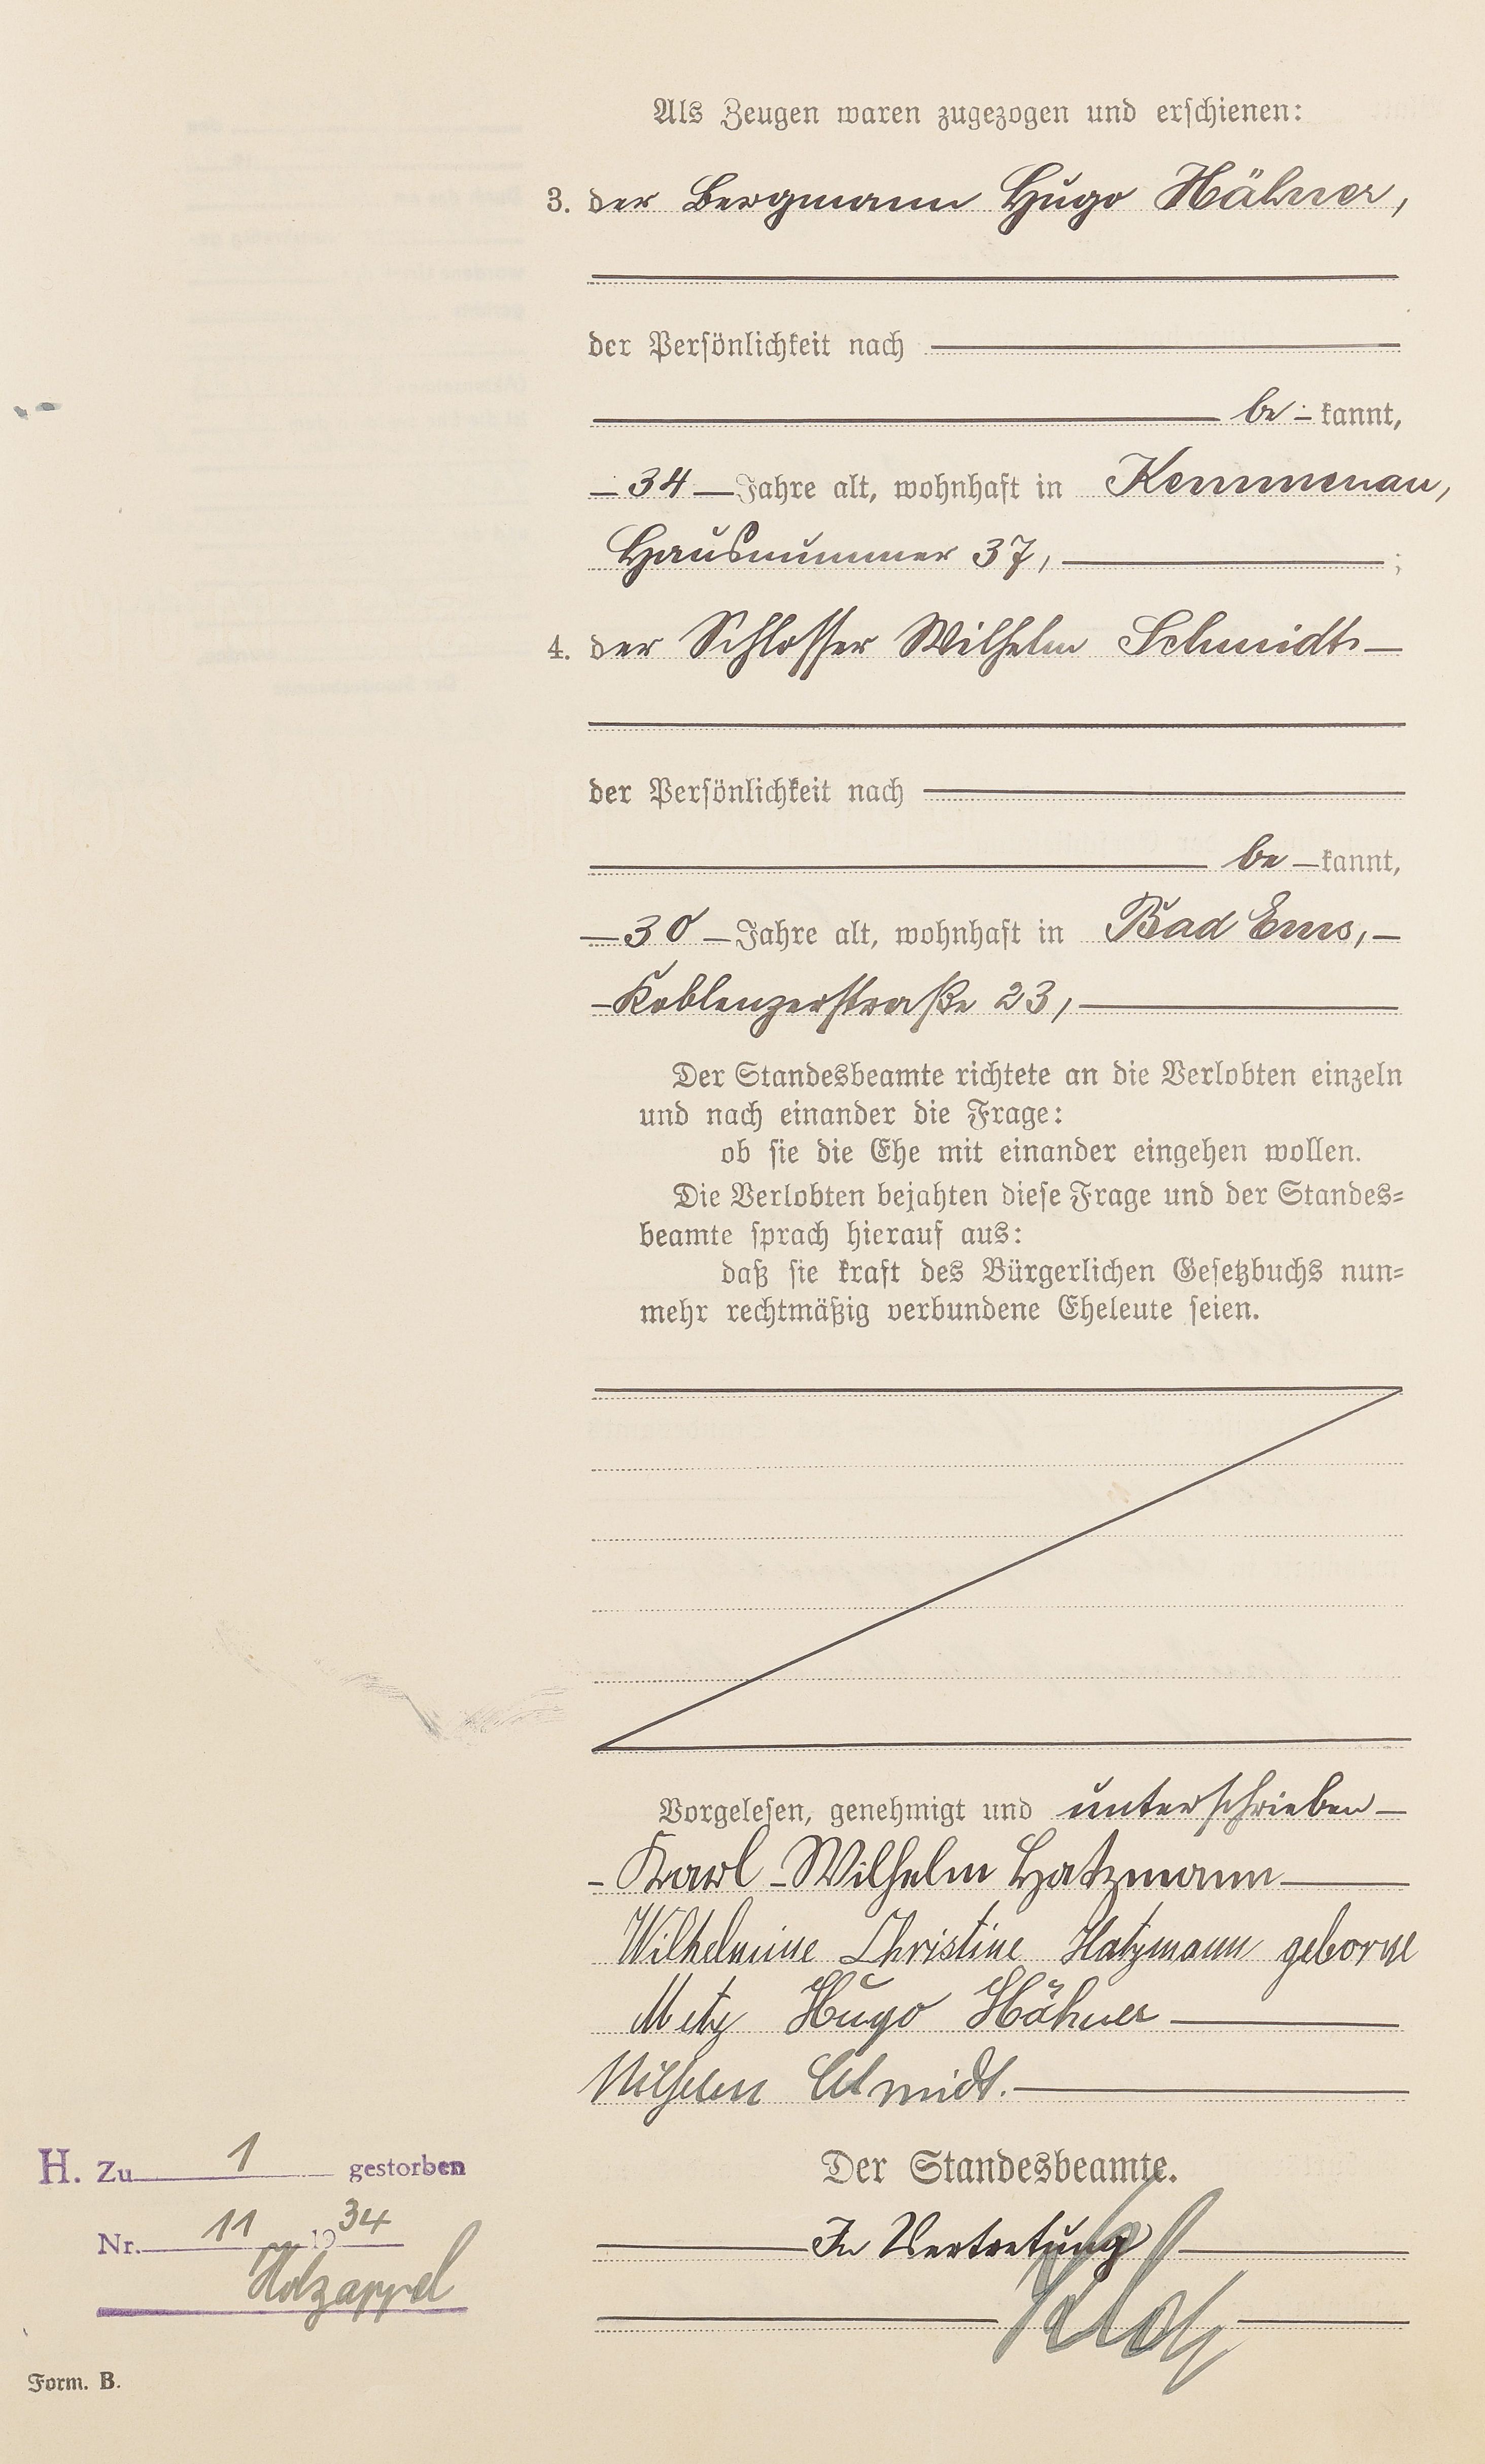 Als Zeugen waren zugezogen und erschienen:
3. der Bergmann Hugo Hähner,
der Persönlichkeit nach
be- kannt,
- 34 - Jahre alt, wohnhaft in Kemmenau,
Hausnummer 37, ;
4. der Schlosser Wilhelm Schmidt -
der Persönlichkeit nach
be - kannt,
- 30 - Jahre alt, wohnhaft in Bad Ems, -
- Koblenzerstraße 23, -
Der Standesbeamte richtete an die Verlobten einzeln
und nach einander die Frage:
ob sie die Ehe mit einander eingehen wollen.
Die Verlobten bejahten diese Frage und der Standes=
beamte sprach hierauf aus:
daß sie kraft des Bürgerlichen Gesetzbuchs nun=
mehr rechtmäßig verbundene Eheleute seien.
Vorgelesen, genehmigt und unterschrieben -
- Karl - Wilhelm Hatzmann -
Wilhelmine Christine Hatzmann geborne
Metz Hugo Hähner -
Wilhelm Schmidt. -
Der Standesbeamte.
In Vertretung
H. Zu 1 gestorben
Nr. 11 1934
Holzappel
Form. B.